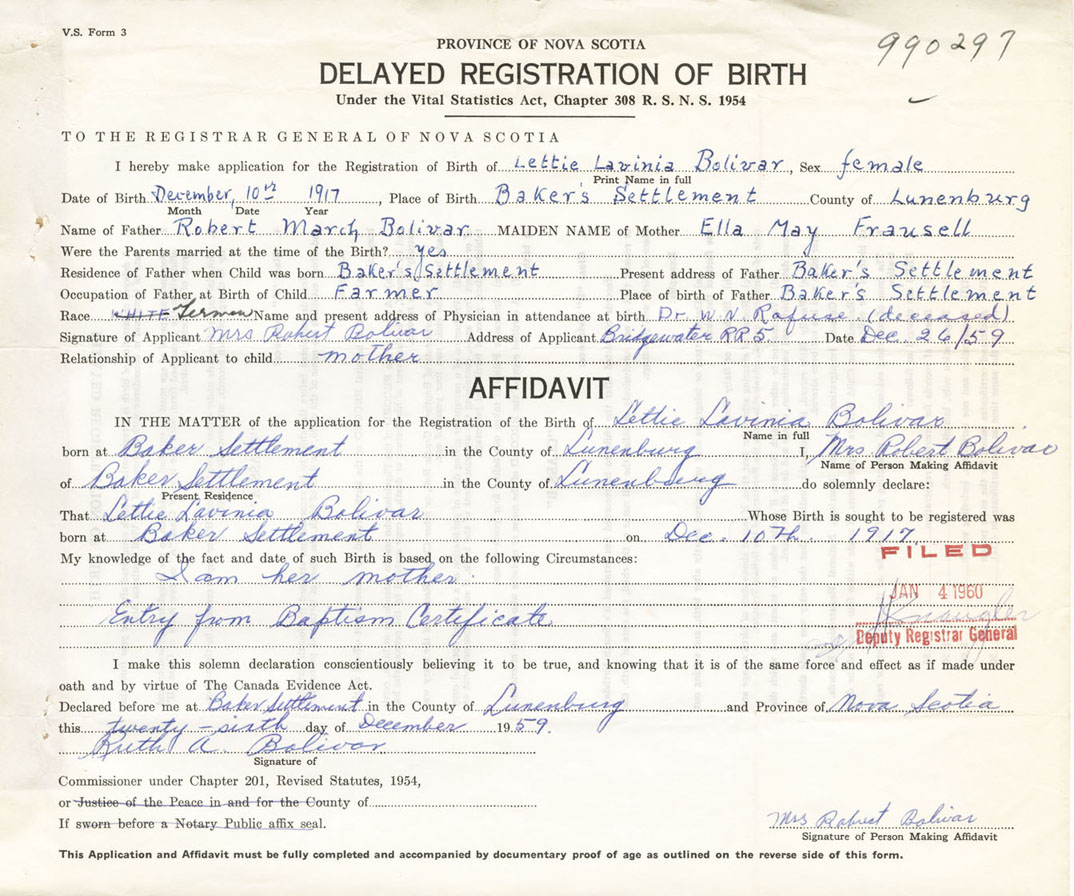 V.S. Form 3
990297
PROVINCE OF NOVA SCOTIA
DELAYED REGISTRATION OF BIRTH
Under the Vital Statistics Act, Chapter 308 R. S. N. S. 1954
TO THE REGISTRAR GENERAL OF NOVA SCOTIA
I hereby make application for the Registration of Birth of Lettie Lavinia Bolivar, Sex female
Print Name in full
Date of Birth December, 10th 1917, Place of Birth Baker's Settlement County of Lunenburg
Month Date Year
Name of Father Robert March Bolivar MAIDEN NAME of Mother Ella May Frausell
Were the Parents married at the time of the Birth? yes
Residence of Father when Child was born Baker's Settlement Present address of Father Baker's Settlement
Occupation of Father at Birth of Child Farmer Place of birth of Father Baker's Settlement
Race WHITE German Name and present address of Physician in attendance at birth Dr. W. N. Rafuse (deceased)
Signature of Applicant Mrs Robert Bolivar Address of Applicant Bridgewater RR 5. Date Dec. 26/59
Relationship of Applicant to child mother
AFFIDAVIT
IN THE MATTER of the application for the Registration of the Birth of Lettie Lavinia Bolivar
Name in full
born at Baker Settlement in the County of Lunenburg I, Mrs Robert Bolivar
Name of Person Making Affidavit
of Baker Settlement in the County of Lunenbourg do solemnly declare:
Present Residence
That Lettie Lavinia Bolivar Whose Birth is sought to be registered was
born at Baker Settlement on Dec. 10th 1917
FILED
My knowledge of the fact and date of such Birth is based on the following Circumstances:
I am her mother.
JAN 4 1960
Entry from Baptism Certificate
Deputy Registrar General
I make this solemn declaration conscientiously believing it to be true, and knowing that it is of the same force and effect as if made under
oath and by virtue of The Canada Evidence Act.
Declared before me at Baker Settlement in the County of Lunenburg and Province of Nova Scotia
this twenty-sixth day of December 1959.
Ruth A. Bolivar
Signature of
Commissioner under Chapter 201, Revised Statutes, 1954,
or Justice of the Peace in and for the County of
If sworn before a Notary Public affix seal.
Mrs Robert Bolivar
Signature of Person Making Affidavit
This Application and Affidavit must be fully completed and accompanied by documentary proof of age as outlined on the reverse side of this form.